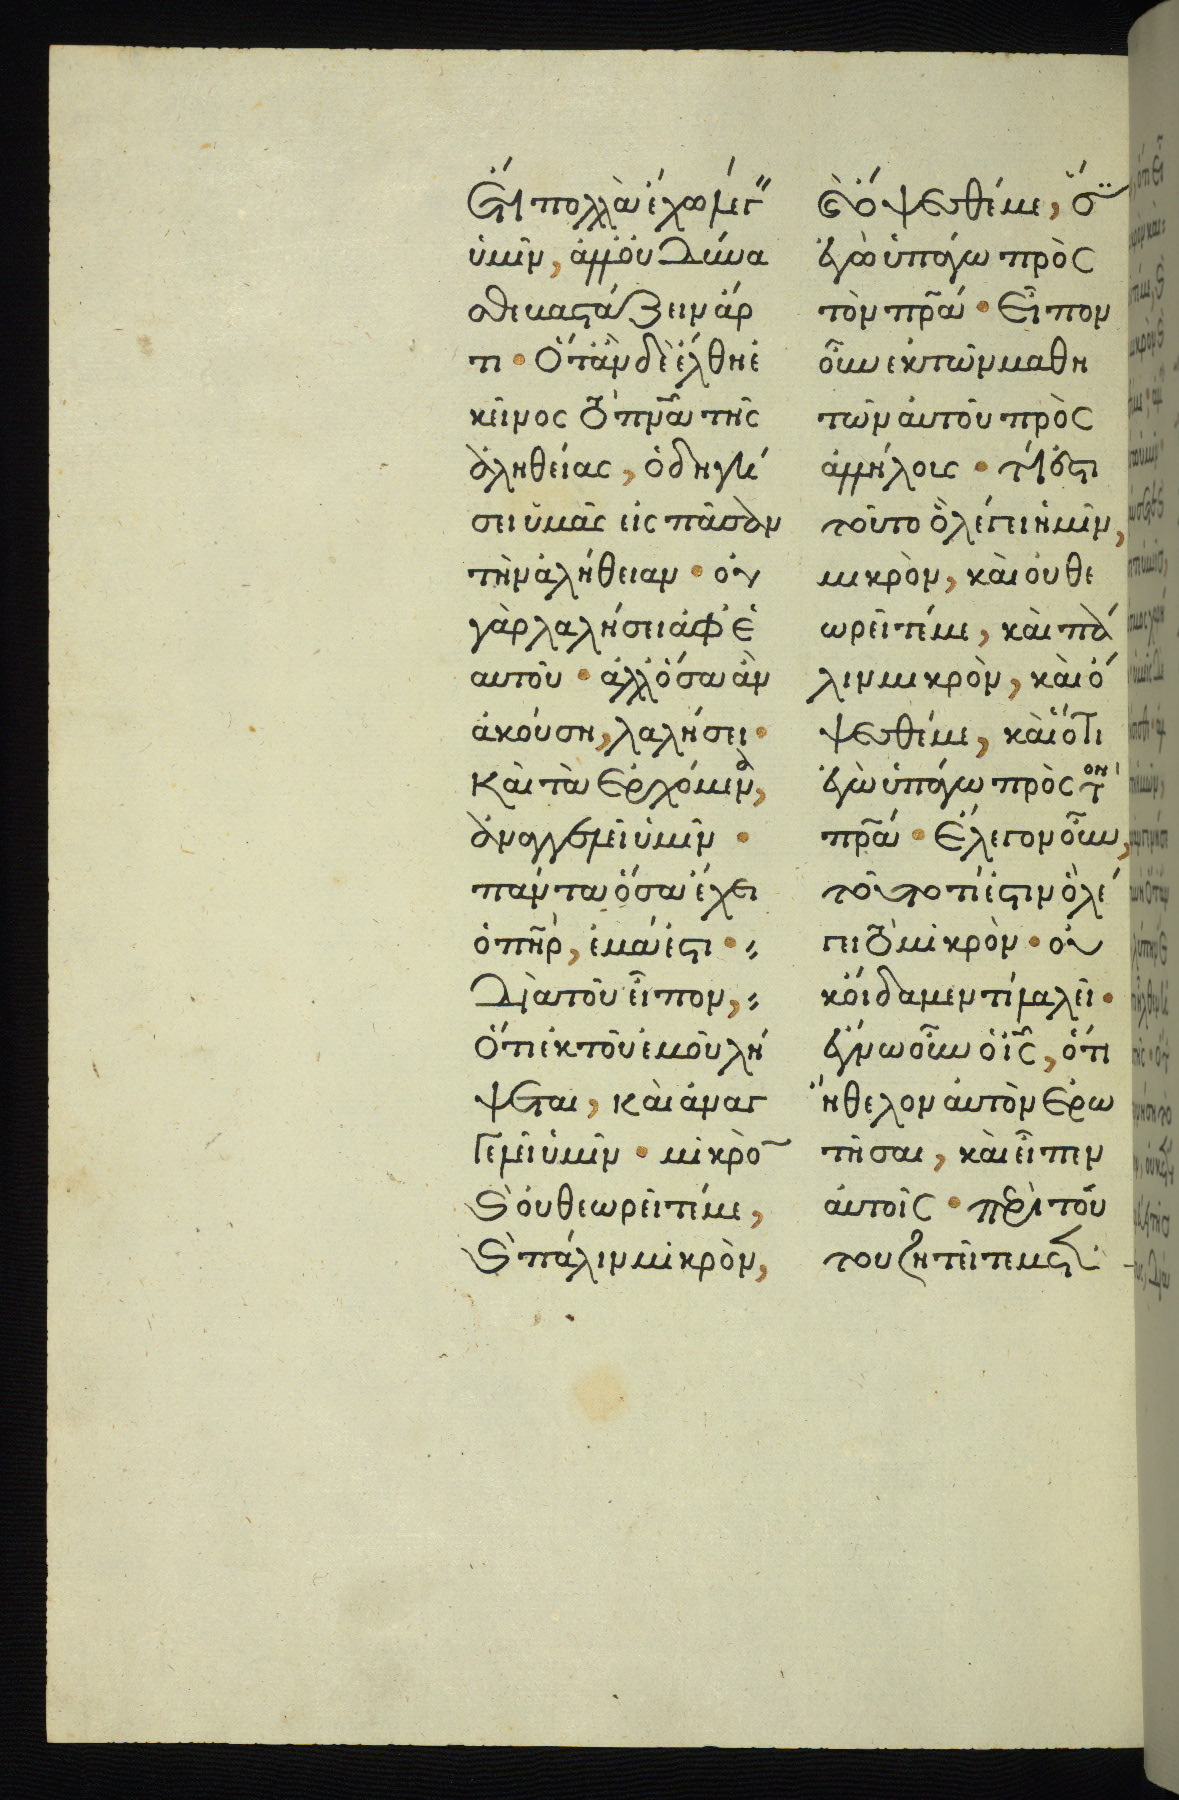 Ἔτι πολλὰ ἔχω λέγ
ὑμῖν, ἀλλ' οὐ δύνα
σθε βαστάζειν ἄρ
τι · Ὅταν δὲ ἔλθη ἐ
κεῖνος τὸ πνᾶ τῆς
ἀληθείας, ὁδηγή
σει ὑμᾶς εἰς πᾶσαν
τὴν ἀλήθειαν · οὐ
γὰρ λαλήσει ἀφ' ἑ
αυτοῦ · ἀλλ' ὅσα ἂν
ἀκούση, λαλήσει ·
Καὶ τὰ ἐρχόμενα,
ἀναγγελεῖ ὑμῖν ·
πάντα ὅσα ἔχει
ὁ πῆρ, ἐμά ἐστι ·
Διὰ τοῦ εἶπον,
Ὅτι ἐκ τοῦ ἐμοῦ λή
ψεται, καὶ ἀναγ
γελεῖ ὑμῖν · μικρὸ
ϗ οὐ θεωρεῖτέ με,
ϗ πάλιν μικρὸν,
ϗ ὄψεσθέ με, ὅτι
ἐγὼ ὑπάγω πρὸς
τὸν πρᾶ · Εἶπον
οὖν ἐκ τῶν μαθη
τῶν αὐτοῦ πρὸς
ἀλλήλους · τί ἐστι
τοῦτο ὃ λέγει ἡμῖν,
μικρὸν, καὶ οὐ θε
ωρεῖτέ με, καὶ πά
λιν μικρὸν, καὶ ὄ
ψεσθέ με, καὶ ὅτι
ἐγὼ ὑπάγω πρὸς τὸν
πρᾶ · Ἔλεγον οὖν,
τοῦτο τί ἐστιν ὃ λέ
γει τὸ μικρὸν · οὐ
κ οἴδαμεν τί λαλεῖ ·
ἔγνω οὖν ὁ ἰς, ὅτι
ἤθελον αὐτὸν ἐρω
τῆσαι, καὶ εἶπεν
αὐτοῖς · περὶ τού
του ζητεῖτε μετ'